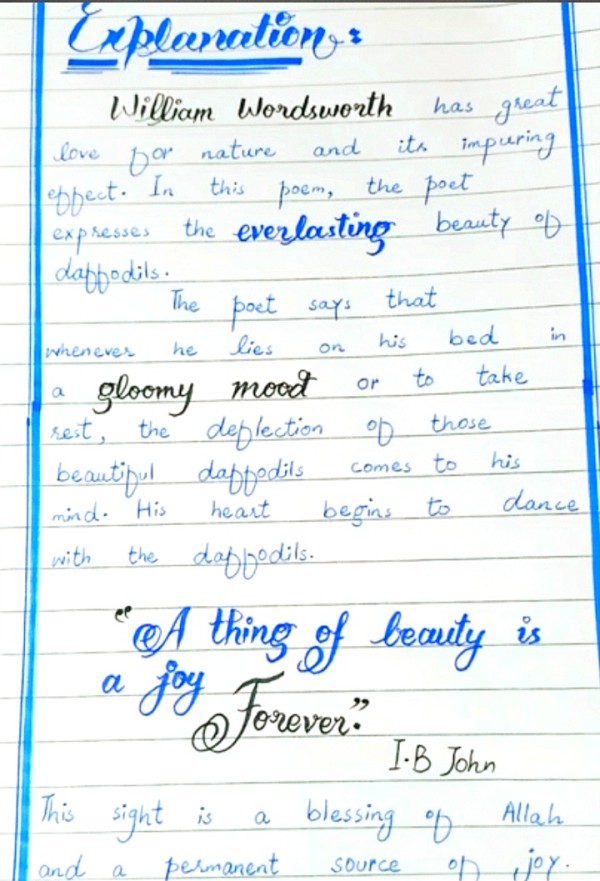 Explanation:
William Wordsworth has great
love for nature and its impuring
effect. In this poem, the poet
expresses the everlasting beauty of
daffodils.
The poet says that
whenever he lies on his bed in
a gloomy mood or to take
rest, the deflection of those
beautiful daffodils comes to his
mind. His heart begins to dance
with the daffodils.
"A thing of beauty is
a joy
Forever."
I.B John
This sight is a blessing of Allah
and a permanent source of joy.